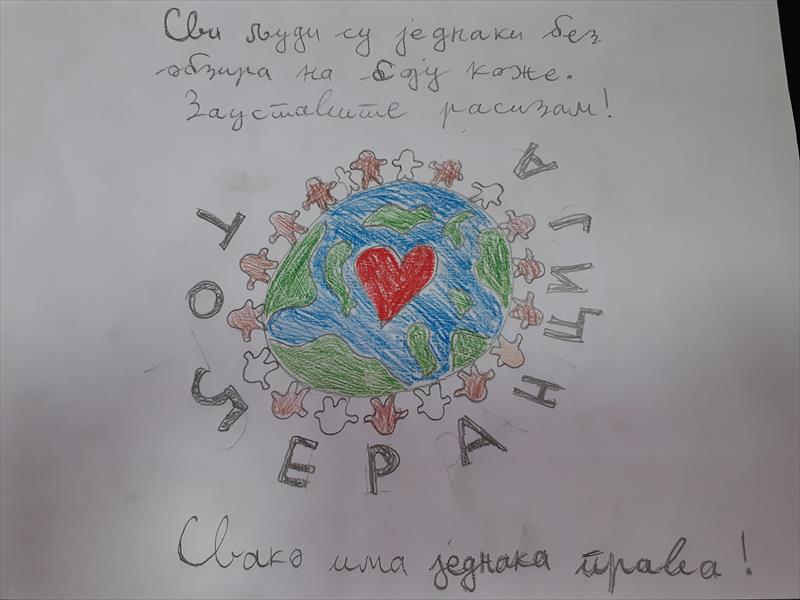 Сви људи су једнаки без
обзира на боју коже.
Зауставите расизам!
ТОЛЕРАНЦИЈА
Свако има једнака права!